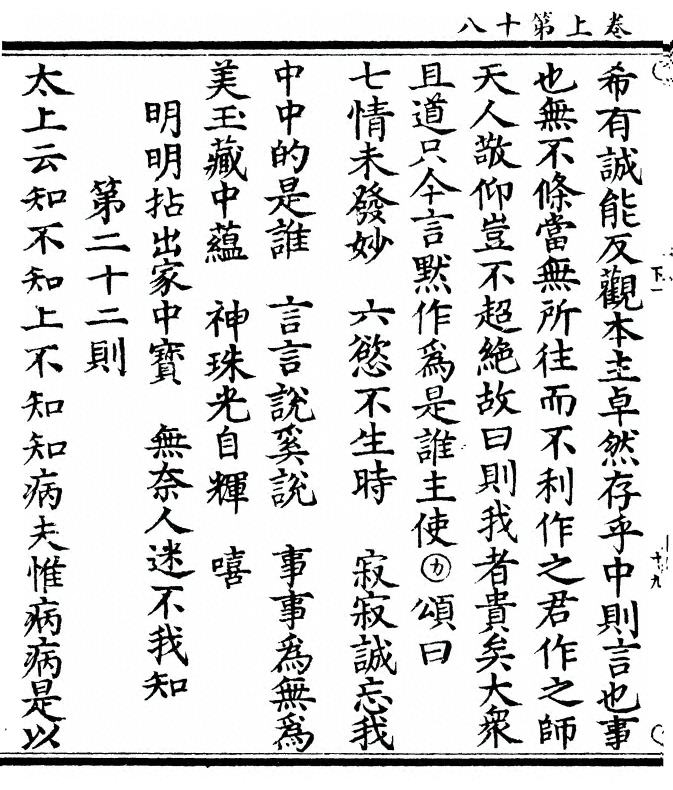 卷上第十八
希有誠能反觀本主卓然存乎中則言也事
也無不條當無所往而不利作之君作之師
天人敬仰豈不超絶故曰則我者貴矣大衆
且道只今言默作爲是誰主使㊉頌曰
七情未發妙　六慾不生時　寂寂誠忘我
中中的是誰　言言說奚說　事事爲無爲
美玉藏中蘊　神珠光自輝　嘻
明明拈出家中寶　無奈人迷不我知
第二十二則
太上云知不知上不知知病夫惟病病是以